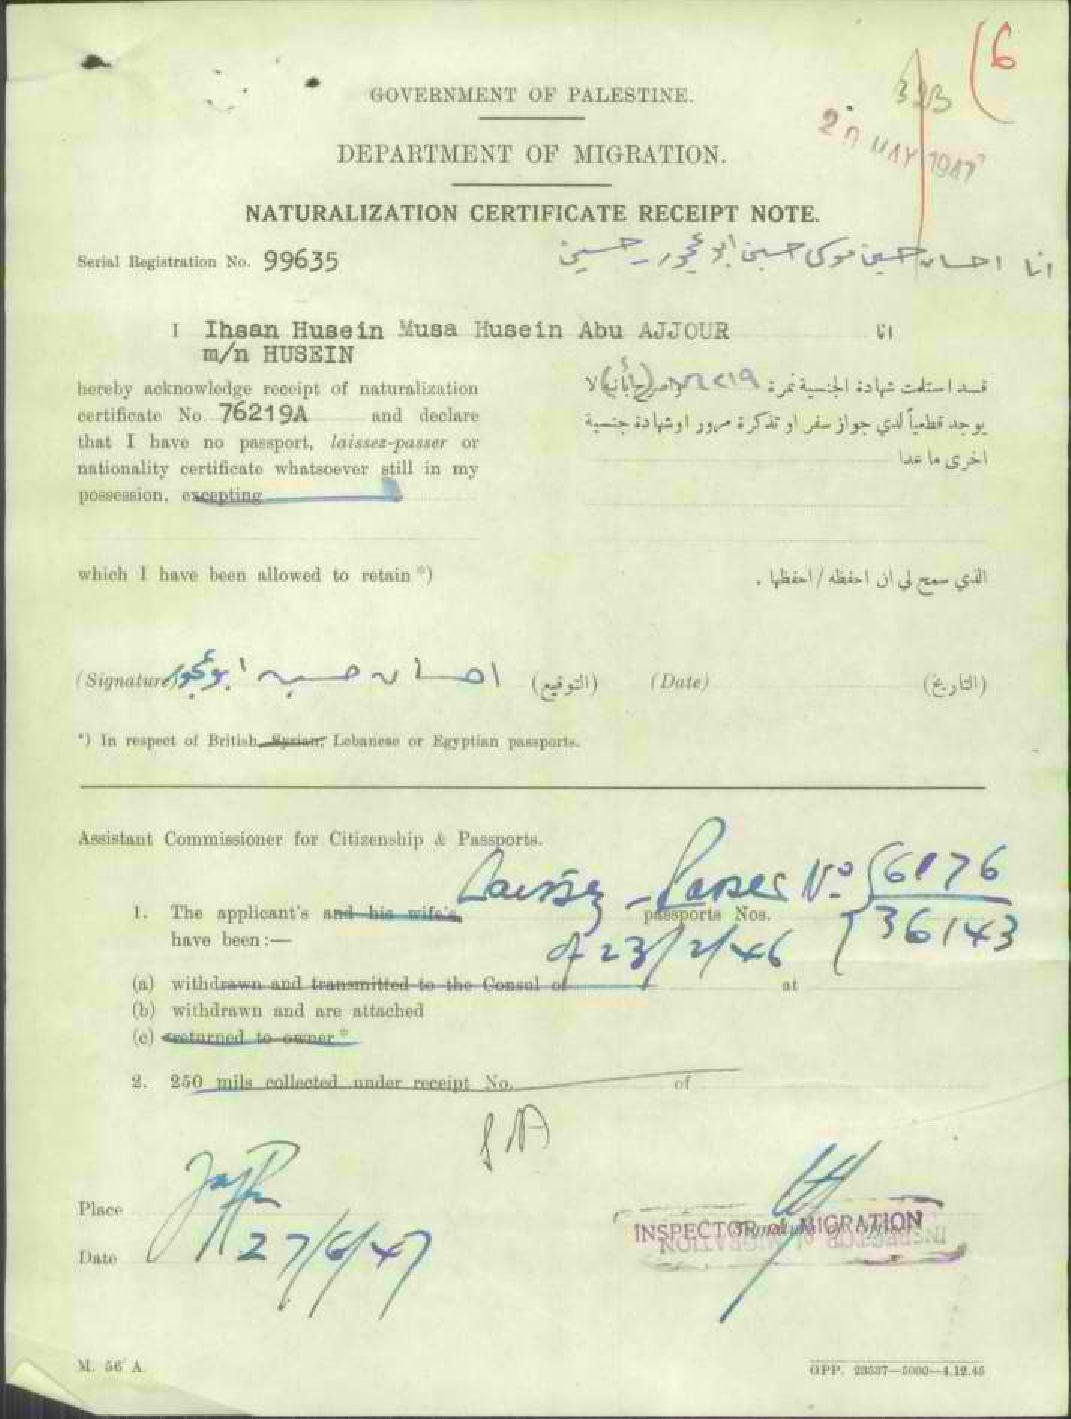 6
323
GOVERNMENT OF PALESTINE.
2 MAY 1947
DEPARTMENT OF MIGRATION.
NATURALIZATION CERTIFICATE RECEIPT NOTE.
Serial Registration No. 99635
انا احسان حسين موسى حسين ابو عجور حسين
I Ihsan Husein Musa Husein Abu AJJOUR انا
m/n HUSEIN
hereby acknowledge receipt of naturalization
certificate No. 76219A and declare
that I have no passport, laissez-passer or
nationality certificate whatsoever still in my
possession, excepting
قد استلمت شهادة الجنسية نمرة ٧٦٢١٩ لا
يوجد قطعياً لدي جواز سفر او تذكرة مرور او شهادة جنسية
اخرى ما عدا
which I have been allowed to retain *)
الذي سمح لي ان احفظه / احفظها .
(Signature) احسان حسين ابو عجور (التوقيع) (Date) (التاريخ)
*) In respect of British, Syrian, Lebanese or Egyptian passports.
Assistant Commissioner for Citizenship & Passports.
Laissez-Passer No 6176
1. The applicant's and his wife's passports Nos. 36143
have been:— of 23/2/46
(a) withdrawn and transmitted to the Consul of at
(b) withdrawn and are attached
(c) returned to owner *
2. 250 mils collected under receipt No. of
Place Jaffa
Date 27/6/47
INSPECTOR of MIGRATION
M. 56 A.
GPP. 23537—5000—4.12.45